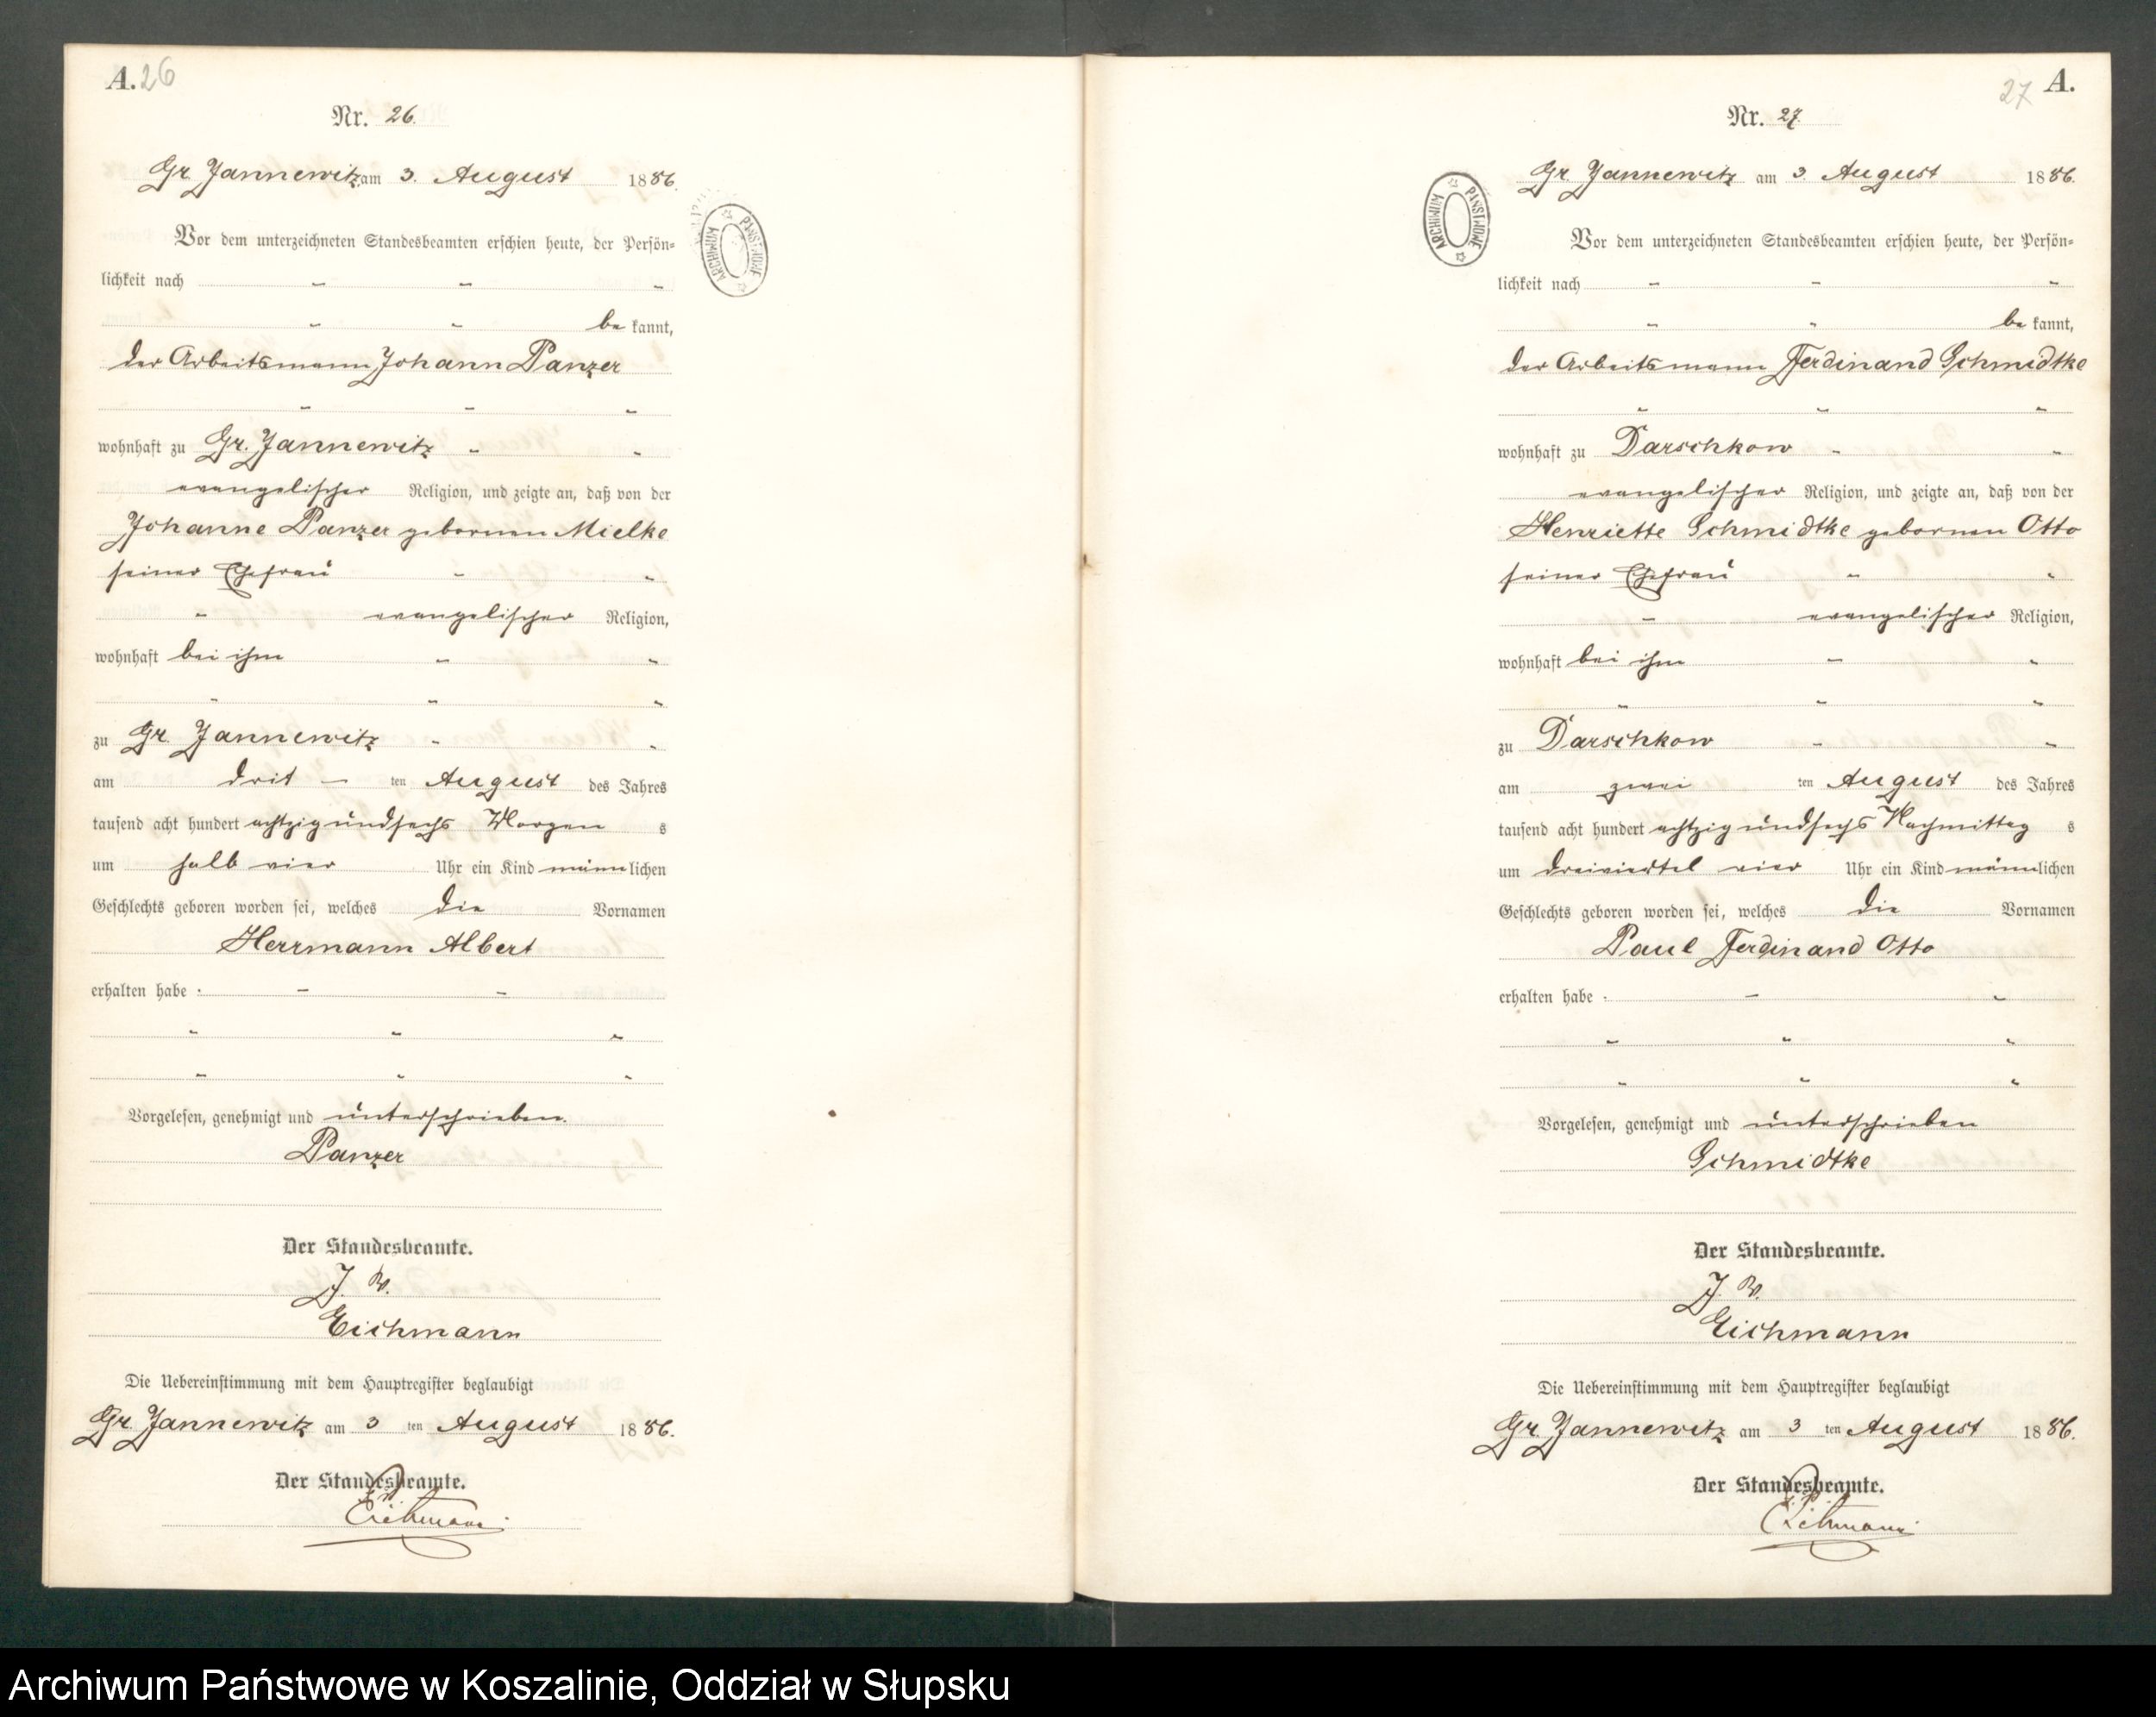 A. 26
Nr. 26.
Gr. Jannewitz am 3. August 1886.
Vor dem unterzeichneten Standesbeamten erschien heute, der Persön-
lichkeit nach
be kannt,
der Arbeitsmann Johann Panzer
wohnhaft zu Gr. Jannewitz
evangelischer Religion, und zeigte an, daß von der
Johanne Panzer gebornen Mielke
seiner Ehefrau
evangelischer Religion,
wohnhaft bei ihm
zu Gr. Jannewitz
am drit – ten August des Jahres
tausend acht hundert achtzig und sechs Morgen s
um halb vier Uhr ein Kind männlichen
Geschlechts geboren worden sei, welches die Vornamen
Herrmann Albert
erhalten habe.
Vorgelesen, genehmigt und unterschrieben.
Panzer
Der Standesbeamte.
J. V.
Eichmann
Die Uebereinstimmung mit dem Hauptregister beglaubigt
Gr. Jannewitz am 3 ten August 1886.
Der Standesbeamte.
Eichmann
ARCHIWUM PAŃSTWOWE
27 A.
Nr. 27.
Gr. Jannewitz am 3. August 1886.
Vor dem unterzeichneten Standesbeamten erschien heute, der Persön-
lichkeit nach
be kannt,
der Arbeitsmann Ferdinand Schmidtke
wohnhaft zu Darschkow
evangelischer Religion, und zeigte an, daß von der
Henriette Schmidtke gebornen Otto
seiner Ehefrau
evangelischer Religion,
wohnhaft bei ihm
zu Darschkow
am zwei ten August des Jahres
tausend acht hundert achtzig und sechs Nachmittag s
um dreiviertel vier Uhr ein Kind männlichen
Geschlechts geboren worden sei, welches die Vornamen
Paul Ferdinand Otto
erhalten habe.
Vorgelesen, genehmigt und unterschrieben
Schmidtke
Der Standesbeamte.
J. V.
Eichmann
Die Uebereinstimmung mit dem Hauptregister beglaubigt
Gr. Jannewitz am 3 ten August 1886.
Der Standesbeamte.
Eichmann
ARCHIWUM PAŃSTWOWE
Archiwum Państwowe w Koszalinie, Oddział w Słupsku